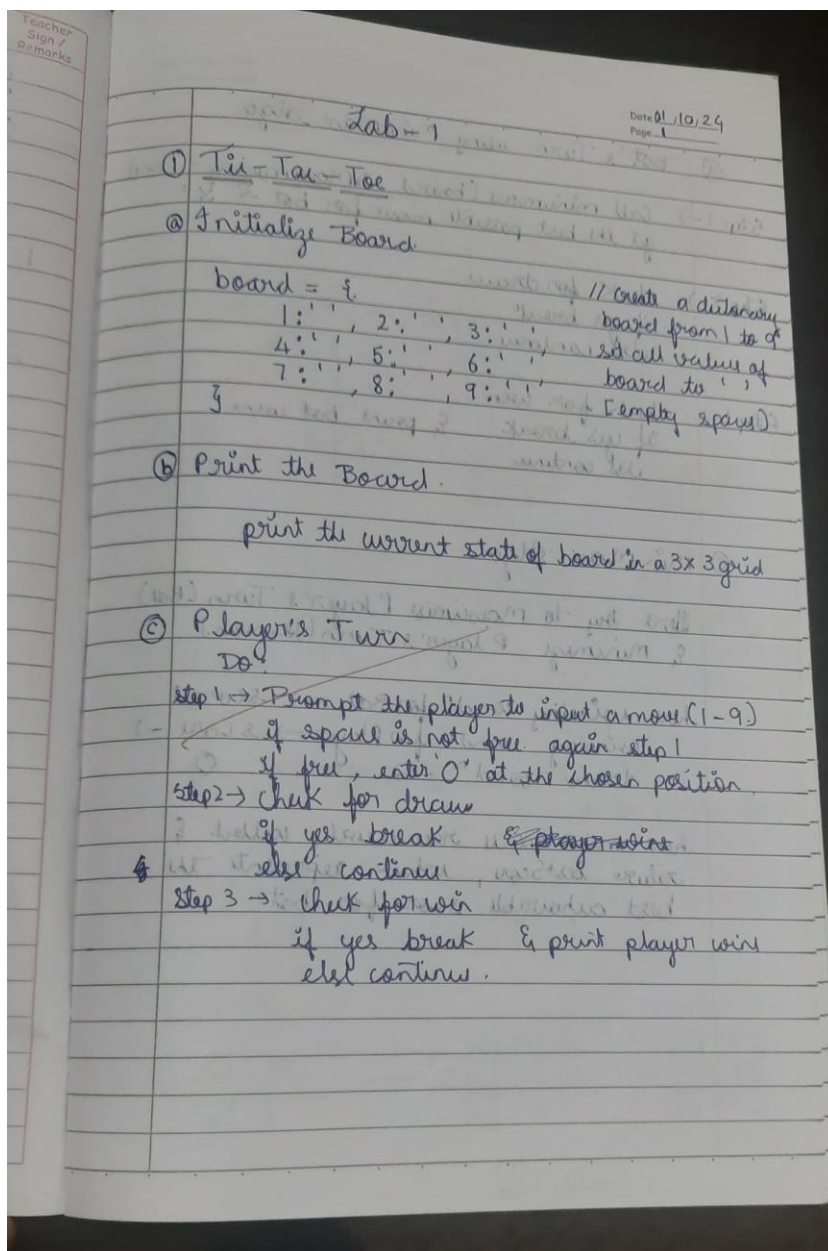 Teacher
Sign /
Remarks
Lab-1
Date 01/10/24
Page 1
① Tic-Tac-Toe
ⓐ Initialize Board
board = { // create a dictionary
1:' ', 2:' ', 3:' ', board from 1 to 9
4:' ', 5:' ', 6:' ', set all value of
7:' ', 8:' ', 9:' ' board to ' '
} [empty spaces]
ⓑ Print the Board.
print the current state of board in a 3x3 grid
ⓒ Player's Turn
Do:
step 1 → Prompt the player to input a move (1-9)
if space is not free again step 1
if free, enter 'O' at the chosen position
step 2 → check for draw
if yes break & player wins
else continue
step 3 → check for win
if yes break & print player wins
else continue.